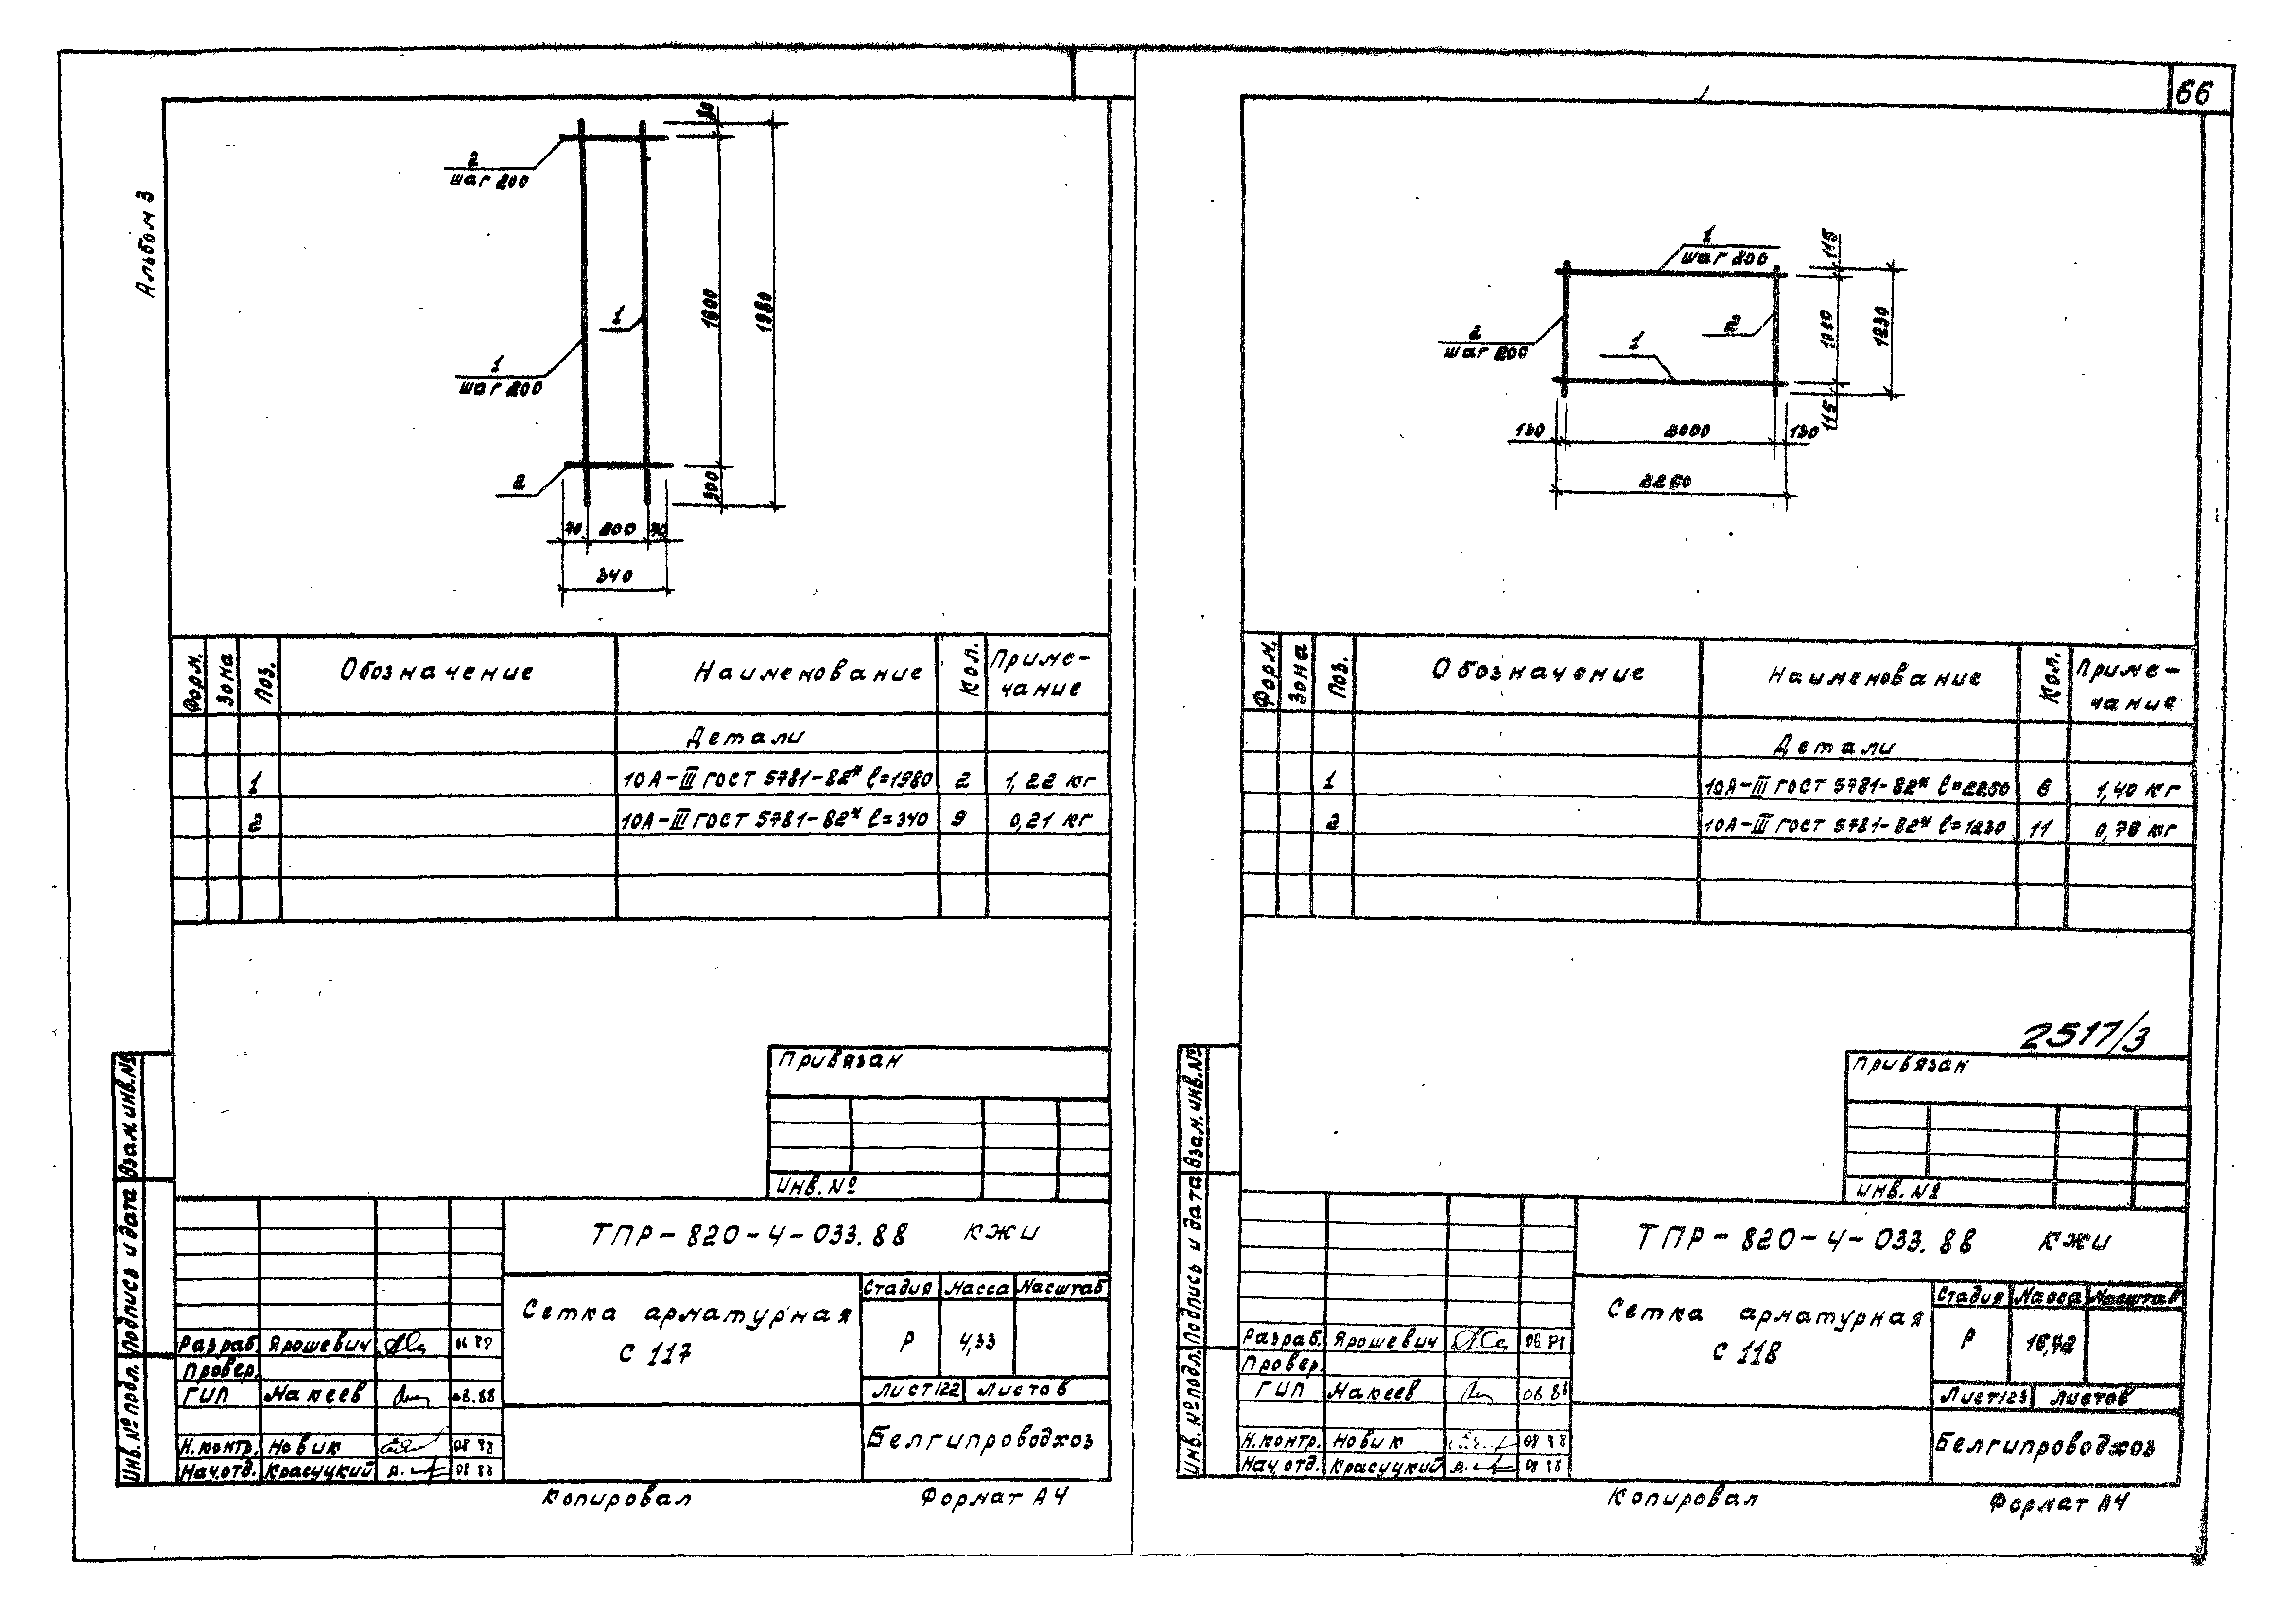 66
Альбом 3
2
шаг 200
1
1
шаг 200
2
80
1600
1980
300
70 200 70
340
Форм.
Зона
Поз.
Обозначение
Наименование
Кол.
Приме-
чание
Детали
1 10А-III ГОСТ 5781-82* ℓ=1980 2 1,22 кг
2 10А-III ГОСТ 5781-82* ℓ=340 9 0,21 кг
Привязан
Инв. №
ТПР-820-4-033.88 КЖИ
Сетка арматурная
С 117
Стадия Масса Масштаб
Р 4,33
Лист 122 Листов
Белгипроводхоз
Разраб. Ярошевич
Провер.
ГИП Макеев 08.88
Н.контр. Новик 08 88
Нач.отд. Красуцкий 08 88
Взам. инв.№
Подпись и дата
Инв.№ подл.
Копировал Формат А4
1
шаг 200
2
шаг 200
2
1
115
1230
115
130 2000 130
2260
Форм.
Зона
Поз.
Обозначение
Наименование
Кол.
Приме-
чание
Детали
1 10А-III ГОСТ 5781-82* ℓ=2260 6 1,40 кг
2 10А-III ГОСТ 5781-82* ℓ=1230 11 0,76 кг
2517/3
Привязан
Инв. №
ТПР-820-4-033.88 КЖИ
Сетка арматурная
С 118
Стадия Масса Масштаб
Р
Лист 123 Листов
Белгипроводхоз
Разраб. Ярошевич
Провер.
ГИП Макеев 06 88
Н.контр. Новик 08 88
Нач.отд. Красуцкий 08 88
Взам. инв.№
Подпись и дата
Инв.№ подл.
Копировал Формат А4